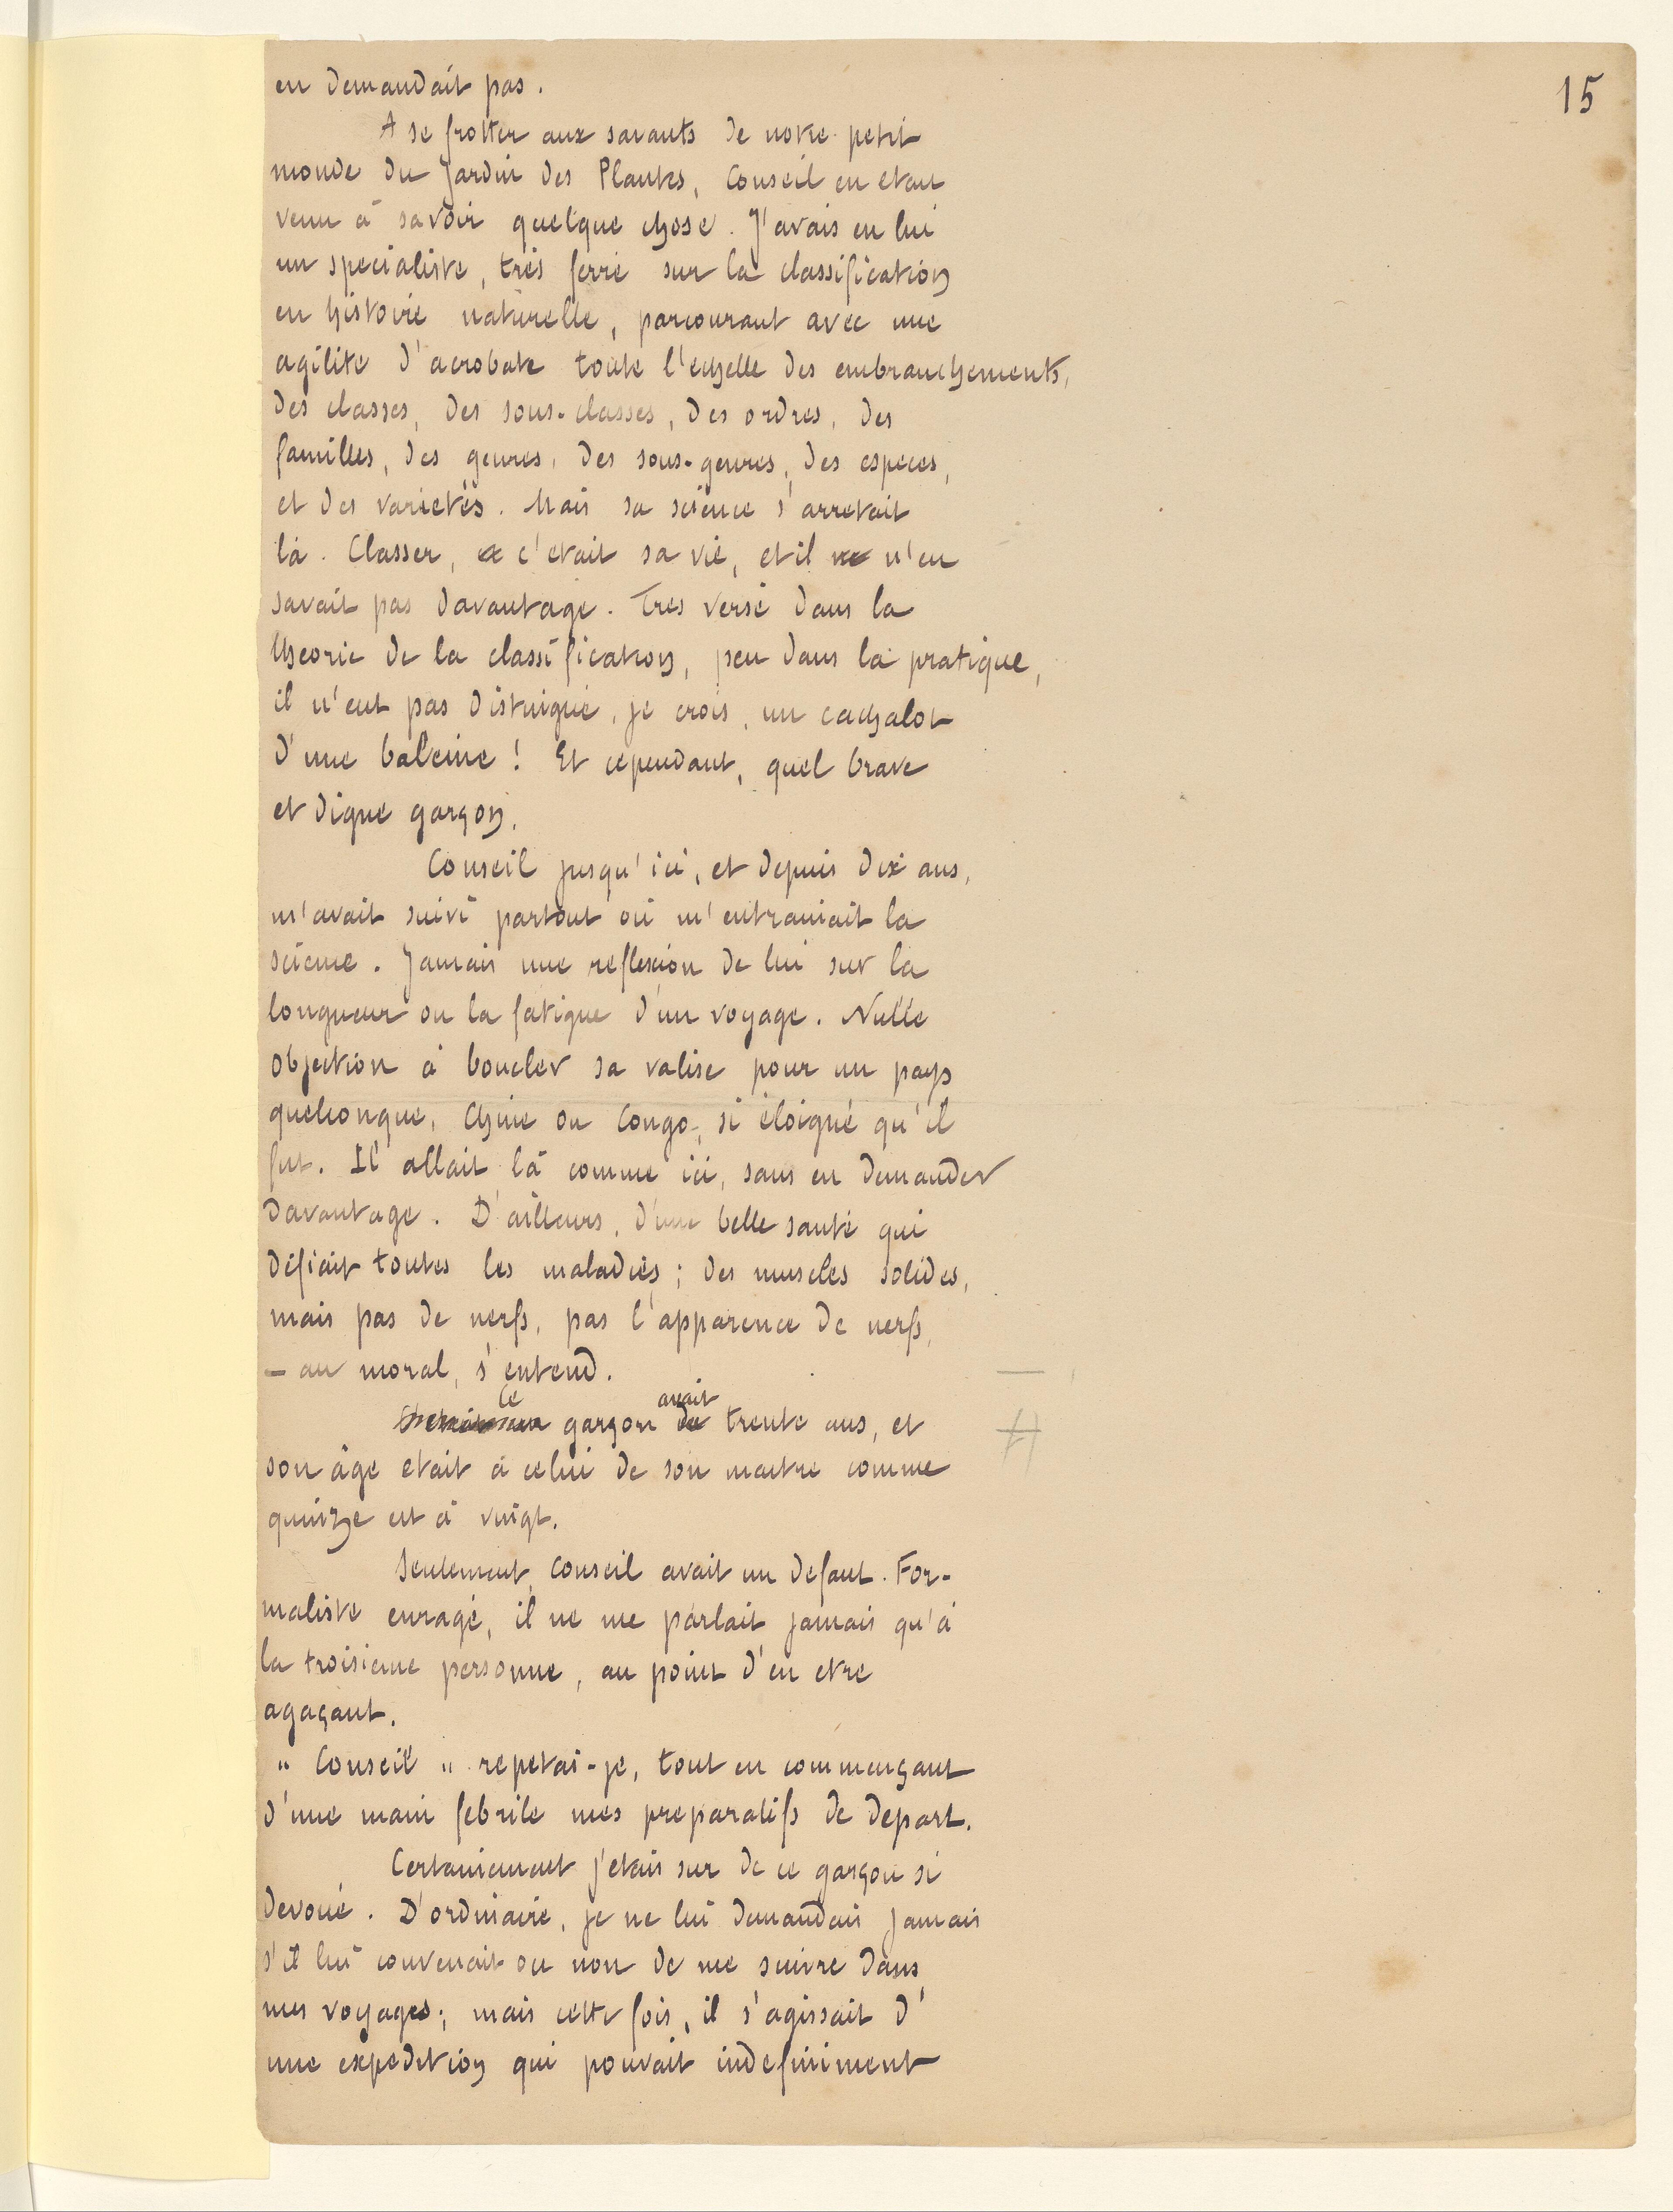 15
en demandait pas.
A se frotter aux savants de notre petit
monde du Jardin des Plantes, Conseil en etait
venu à savoir quelque chose. J'avais en lui
un specialiste, très ferré sur la classification
en histoire naturelle, parcourant avec une
agilite d'acrobate toute l'echelle des embranchements,
des classes, des sous-classes, des ordres, des
familles, des genres, des sous-genres, des especes,
et des varietés. Mais sa science s'arretait
là. Classer, c'etait sa vie, et il ne n'en
savait pas davantage. Tres versé dans la
theorie de la classification, peu dans la pratique,
il n'eut pas distingué, je crois, un cachalot
d'une baleine ! Et cependant, quel brave
et digne garçon.
Conseil jusqu'ici, et depuis dix ans,
m'avait suivi partout où m'entrainait la
science. Jamais une reflexion de lui sur la
longueur ou la fatigue d'un voyage. Nulle
objection à boucler sa valise pour un pays
quelconque, Chine ou Congo, si éloigné qu'il
fut. Il allait là comme ici, sans en demander
davantage. D'ailleurs, d'une belle santé qui
défiait toutes les maladies ; des muscles solides,
mais pas de nerfs, pas l'apparence de nerfs,
– au moral, s'entend.
Ce garçon avait de trente ans, et
son âge etait à celui de son maitre comme
quinze est à vingt.
Seulement, Conseil avait un defaut. For-
maliste enragé, il ne me parlait jamais qu'à
la troisieme personne, au point d'en etre
agaçant.
" Conseil " repetai-je, tout en commençant
d'une main febrile mes preparatifs de depart.
Certainement j'etais sur de ce garçon si
devoué. D'ordinaire, je ne lui demandais jamais
s'il lui convenait ou non de me suivre dans
mes voyages ; mais cette fois, il s'agissait d'
une expedition qui pouvait indefiniment